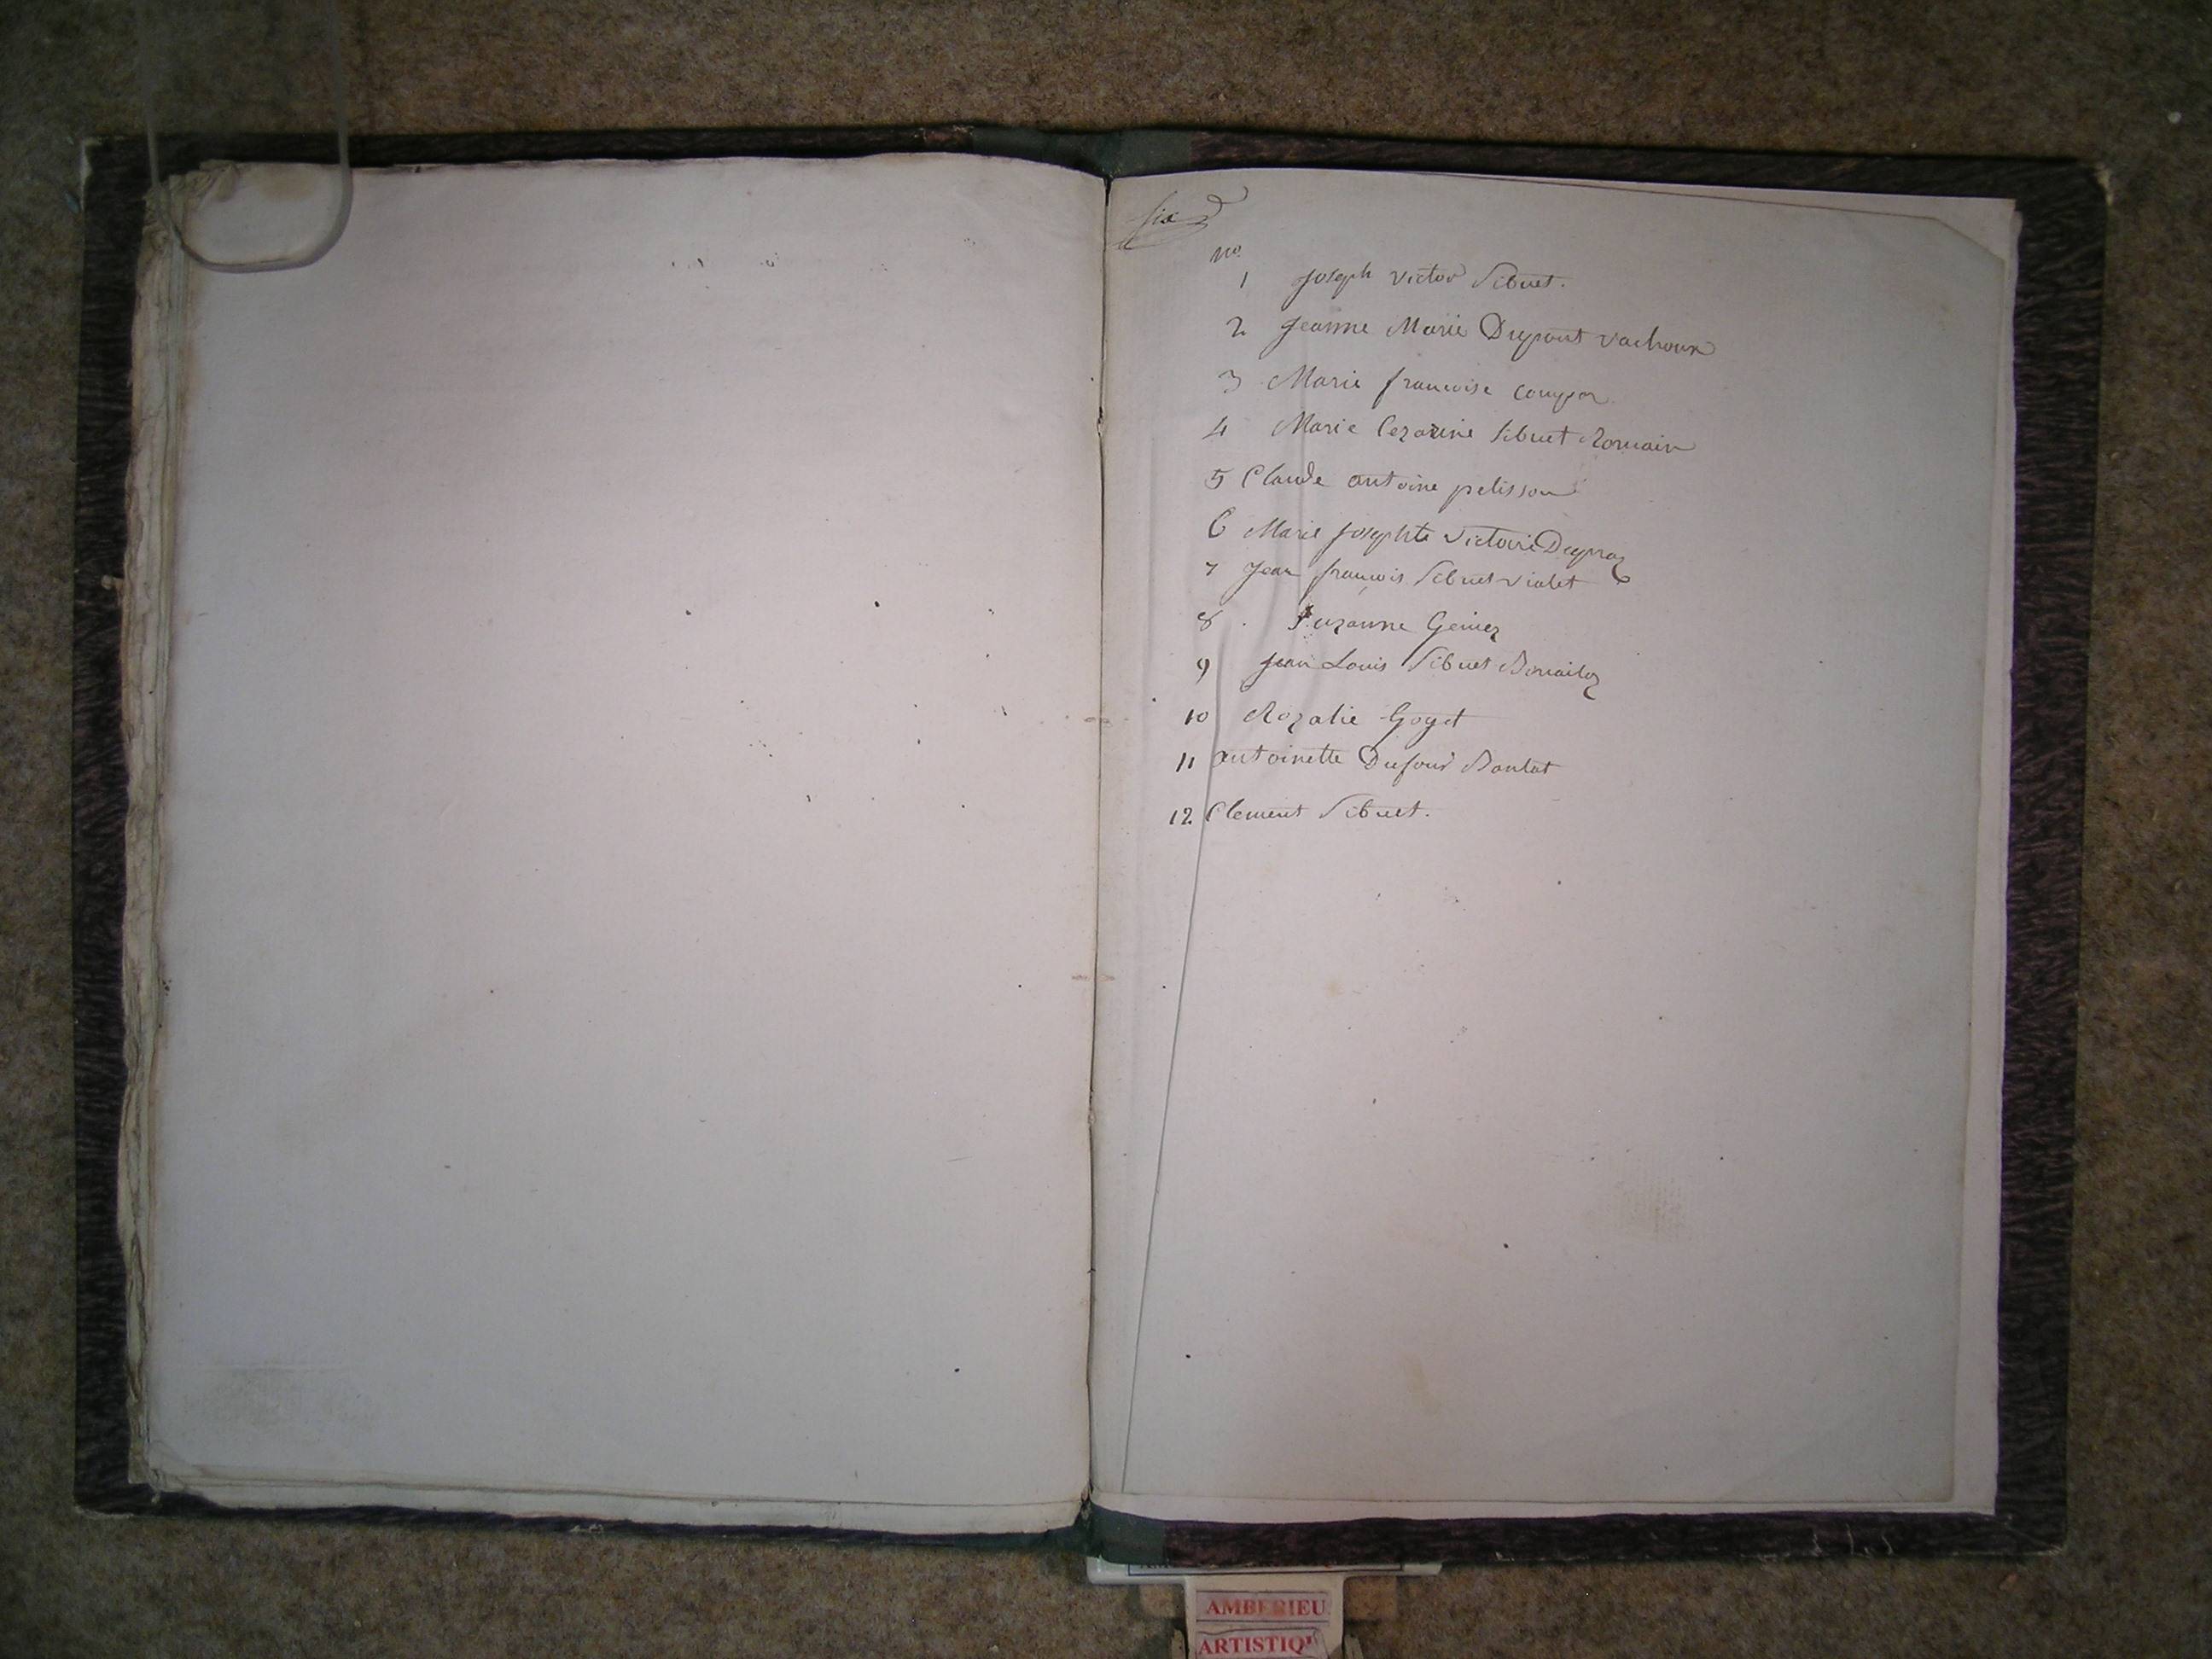 six
no
1 Joseph Victor Sibuet.
2 Jeanne Marie Dupont Vachoux
3 Marie francoise
4 Marie Cezarine Sibuet Romain
5 Claude antoine pelisson
6 Marie Josephte Victoire Dupraz
7 Jean francois Sibuet violet
8 Suzanne Genier
9 Jean Louis Sibuet
10 Rozalie Goget
11 antoinette Dufour
12 Clement Sibuet.
AMBERIEU
ARTISTIQ